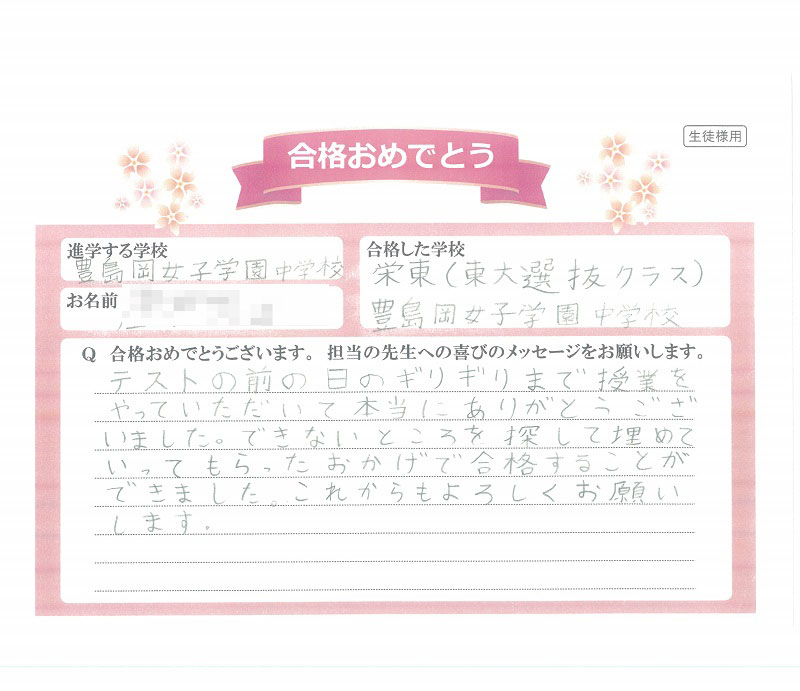 生徒様用
合格おめでとう
進学する学校
豊島岡女子学園中学校
合格した学校
栄東(東大選抜クラス)
豊島岡女子学園中学校
お名前
Q 合格おめでとうございます。担当の先生への喜びのメッセージをお願いします。
テストの前の日のギリギリまで授業を
やっていただいて本当にありがとうござ
いました。できないところを探して埋めて
いってもらったおかげで合格することが
できました。これからもよろしくお願い
します。